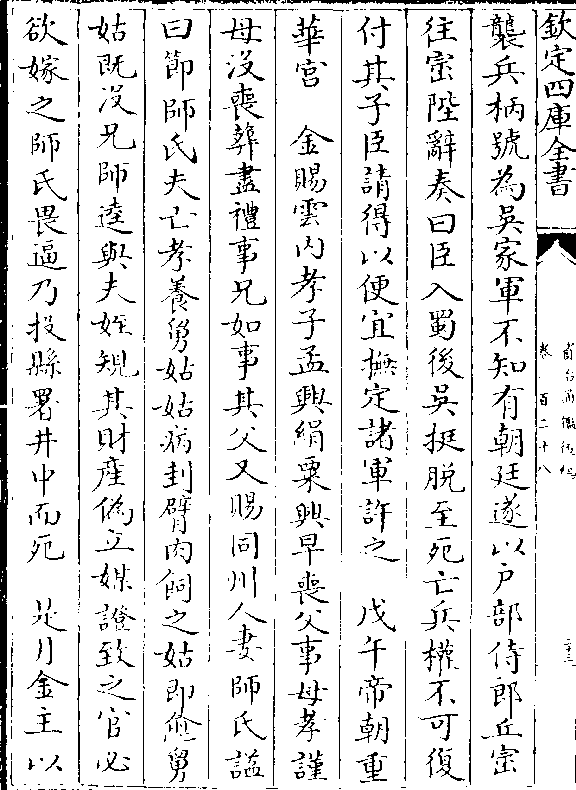 欽定四庫全書
卷一百二十八
二十三
襲兵柄號為吳家軍不知有朝廷遂以户部侍郎丘崈
往崈陛辭奏曰臣入蜀後吳挺脱至死亡兵權不可復
付其子臣請得以便宜撫定諸軍許之　戊午帝朝重
華宫　金賜雲内孝子孟興絹粟興早喪父事母孝謹
母没喪葬盡禮事兄如事其父又賜同州人妻師氏諡
曰節師氏夫亡孝養舅姑姑病刲臂肉飼之姑即愈舅
姑既没兄師逵與夫姪規其財產偽立媒證致之官必
欲嫁之師氏畏逼乃投縣署井中而死　是月金主以